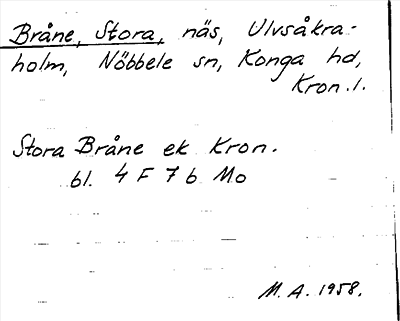 Bråne, Stora, näs, Ulvsåkra-
holm, Nöbbele sn, Konga hd,
Kron.l.
Stora Bråne ek Kron.
bl. 4 F 7 b Mo
M. A. 1958.